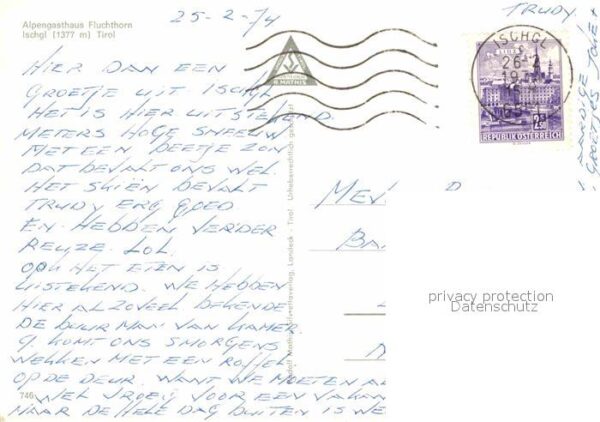 Alpengasthaus Fluchthorn
Ischgl (1377 m) Tirol
25-2-74
HIER DAN EEN
GROETJE UIT ISCHGL
HET IS HIER UITSTEKEND.
METERS HOGE SNEEUW
MET EEN BEETJE ZON
DAT BEVALT ONS WEL.
HET SKIËN BEVALT
TRUDY ERG GOED
EN HEBBEN VERDER
REUZE LOL.
OOK HET ETEN IS
UITSTEKEND. WE HEBBEN
HIER AL ZOVEEL BEKENDE
DE BUURMAN VAN KAMER
9. KOMT ONS SMORGENS
WEKKEN MET EEN ROFFEL
OP DE DEUR. WANT WE MOETEN AL
WEL VROEG VOOR EEN VAKAN
MAAR DE HELE DAG BUITEN IS WE
746
Tirol
Urheberrechtlich geschützt
ISCHGL
26.2
19
LINZ
2.50
REPUBLIK ÖSTERREICH
TRUDY
AARDIGE
GROETJES
MEV
BA
privacy protection
Datenschutz